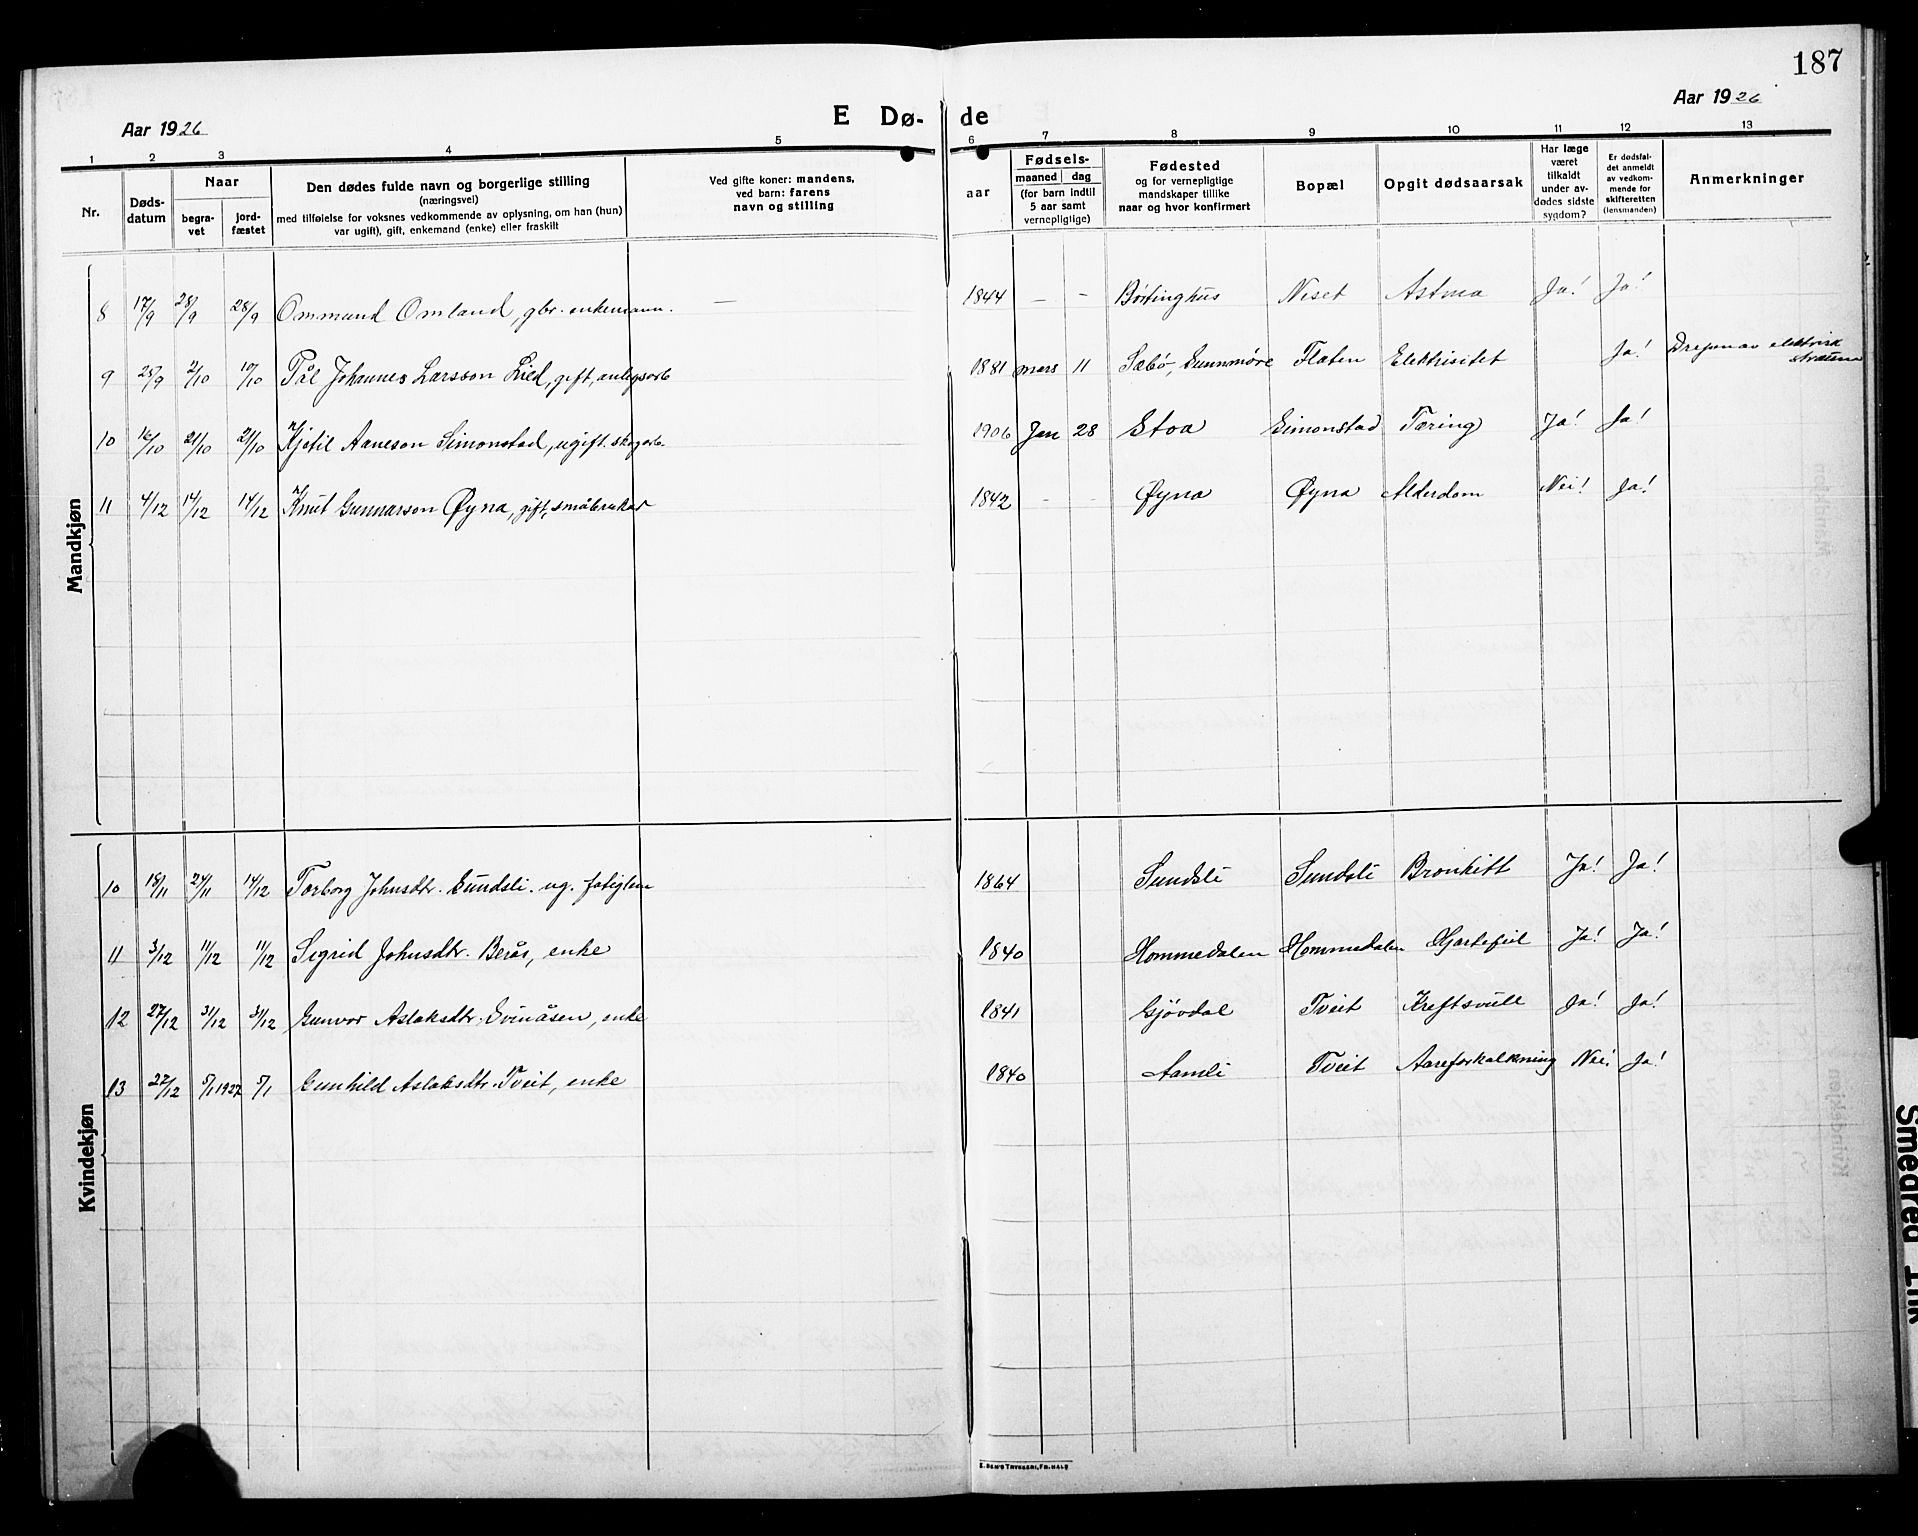 187
Aar 1926
E Dø- de
Aar 1926
1 2 3 4 5 6 7 8 9 10 11 12 13
Nr.
Døds-
datum
Naar
begra-
vet
jord-
fæstet
Den dødes fulde navn og borgerlige stilling
(næringsvei)
med tilføielse for voksnes vedkommende av oplysning, om han (hun)
var ugift), gift, enkemand (enke) eller fraskilt
Ved gifte koner: mandens,
ved barn: farens
navn og stilling
aar
Fødsels-
maaned dag
(for barn indtil
5 aar samt
vernepligtige)
Fødested
og for vernepligtige
mandskaper tillike
naar og hvor konfirmert
Bopæl
Opgit dødsaarsak
Har læge
været
tilkaldt
under av-
dødes sidste
sygdom?
Er dødsfal-
det anmeldt
av vedkom-
mende for
skifteretten
(lensmanden)
Anmerkninger
Mandkjøn
8 17/9 28/9 28/9 Ommund Omland, gbr. enkemann. — 1844 - - Børtinghus Neset Astma Ja! Ja!
9 28/9 2/10 10/10 Pål Johannes Larsson Lied, gift, anlegsarb 1881 mars 11 Sæbø, Sunnmøre Flaten Elektrisitet Ja! Drepen av elektrisk
straum
10 16/10 21/10 21/10 Kjetil Aaneson Simonstad, ugift. skogarb 1906 Jan 28 Stoa Simonstad Tæring Ja! Ja!
11 4/12 14/12 14/12 Knut Gunnarson Øyna, gift, småbrukar 1842 - - Øyna Øyna Alderdom Nei! Ja!
Kvindekjøn
10 18/11 24/11 14/12 Torborg Johnsdtr. Sundsli. ug. fatiglem 1864 Sundsli Sundsli Bronkitt Ja! Ja!
11 3/12 11/12 11/12 Sigrid Johnsdtr. Berås, enke 1840 Hommedalen Hommedalen Hjartefeil Ja! Ja!
12 27/12 31/12 31/12 Gunvor Aslaksdtr. Svinåsen, enke 1841 Gjøvdal Tveit Kreftsvull Ja! Ja!
13 27/12 5/1 1927 5/1 Gunhild Aslaksdtr. Tveit, enke 1840 Aamli Tveit Aareforkalkning Nei! Ja!
E. SEM'S TRYKKERI, FR.HALD